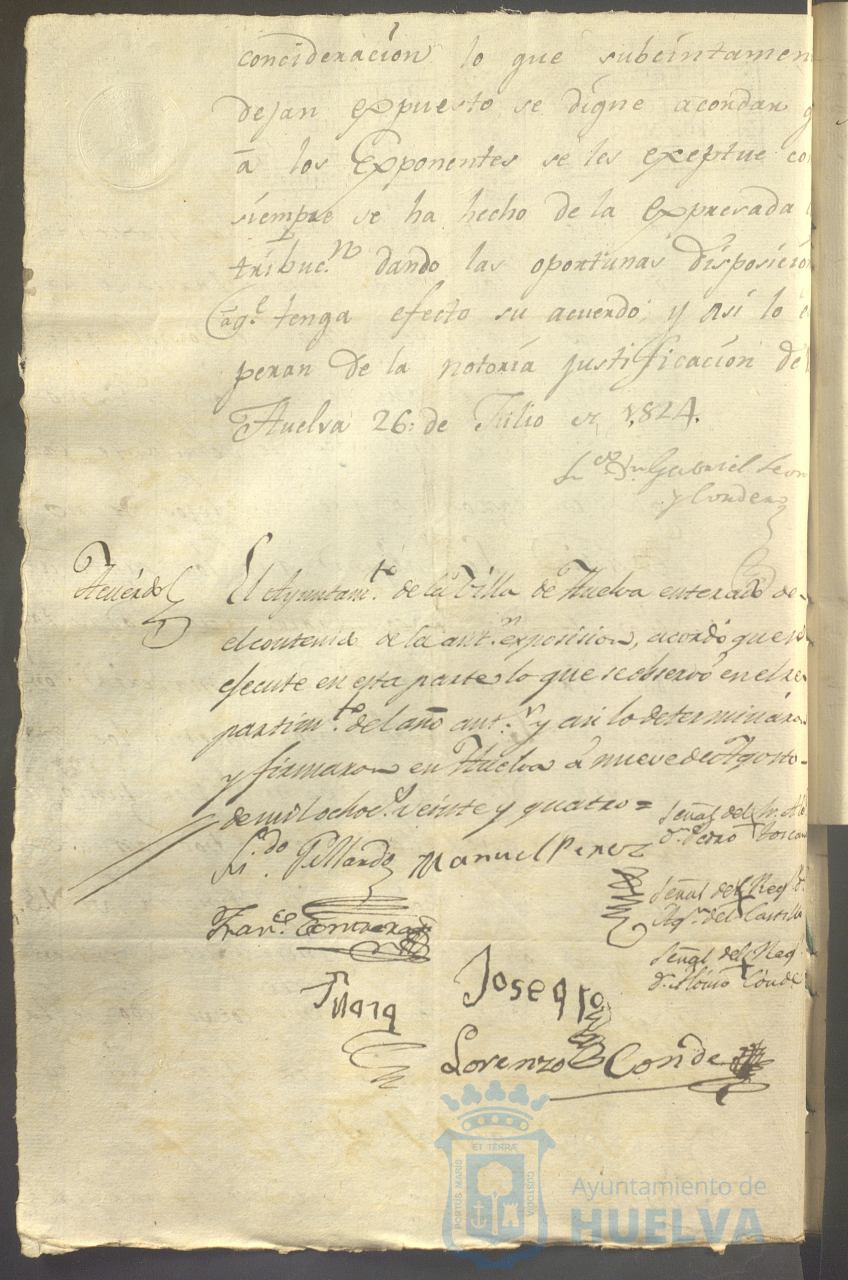 concideracion lo que subcintamen
dejan expuesto se digne acordar q
a los Exponentes se les exeptue co
siempre se ha hecho de la expresada
tribuc.n dando las oportunas disposicio
aq.e tenga efecto su acuerdo; y Asi lo e
peran de la notoria justificacion de
Huelva 26: de Julio de 1824.
L.do Dn. Gabriel Leon
y Conden
Acuerdo
El Ayuntam.to de la Villa de Huelva enterado de
el contenido de la ant.n exposicion, acordó que se
ejecute en esta parte lo que se observó en el re
partim.to del año ant.r y asi lo determinaron
y firmaron en Huelva á nueve de Agosto
de mil ochoc.s veinte y quatro =
L.do Pillardo
Manuel Perez
Señal del Sr. Al
Dn. Pedro Toscan
Señal del Reg.r
Ag.n del Castillo
Señal del Reg.
Dn. Alonso Conde
Fran.co Contreras
Josef
Lorenzo Conde
PORTUS MARIS ET TERRÆ CUSTODIA
Ayuntamiento de
HUELVA